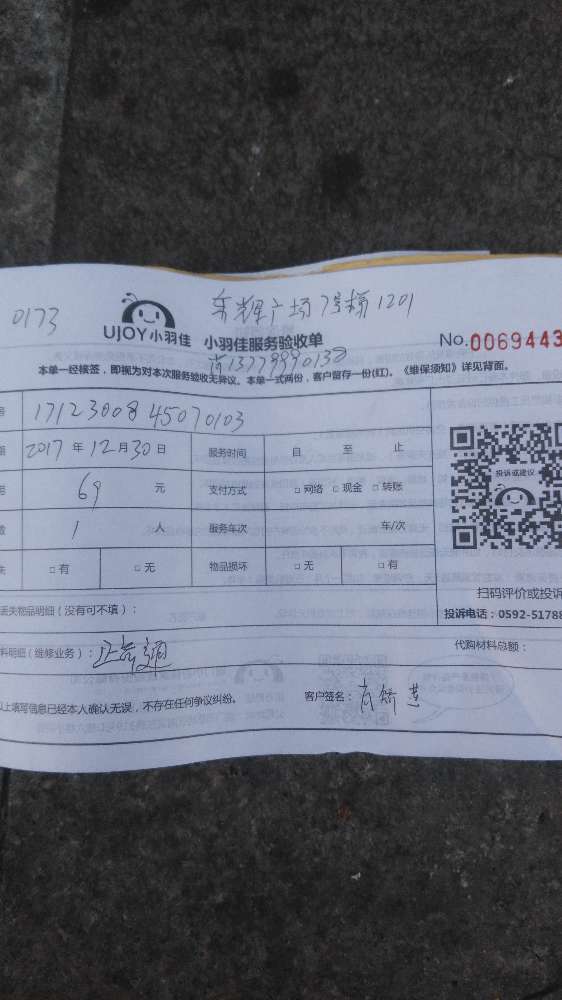 0173
广场7号梯1201
UJOY小羽佳 小羽佳服务验收单
No.0069443
13779990138
本单一经接签，即视为对本次服务验收无异议。本单一式两份，客户留存一份(红)。《维保须知》详见背面。
号 1712300845070103
期 2017年12月30日 服务时间 自 至 止
69 元 支付方式 □网络 □现金 □转账
数 1 人 服务车次 车/次
失 □有 □无 物品损坏 □无 □有
投诉或建议
扫码评价或投诉
丢失物品明细（没有可不填）：
投诉电话：0592-51788
料明细（维修业务）：
代购材料总额：
以上填写信息已经本人确认无误，不存在任何争议纠纷。 客户签名：